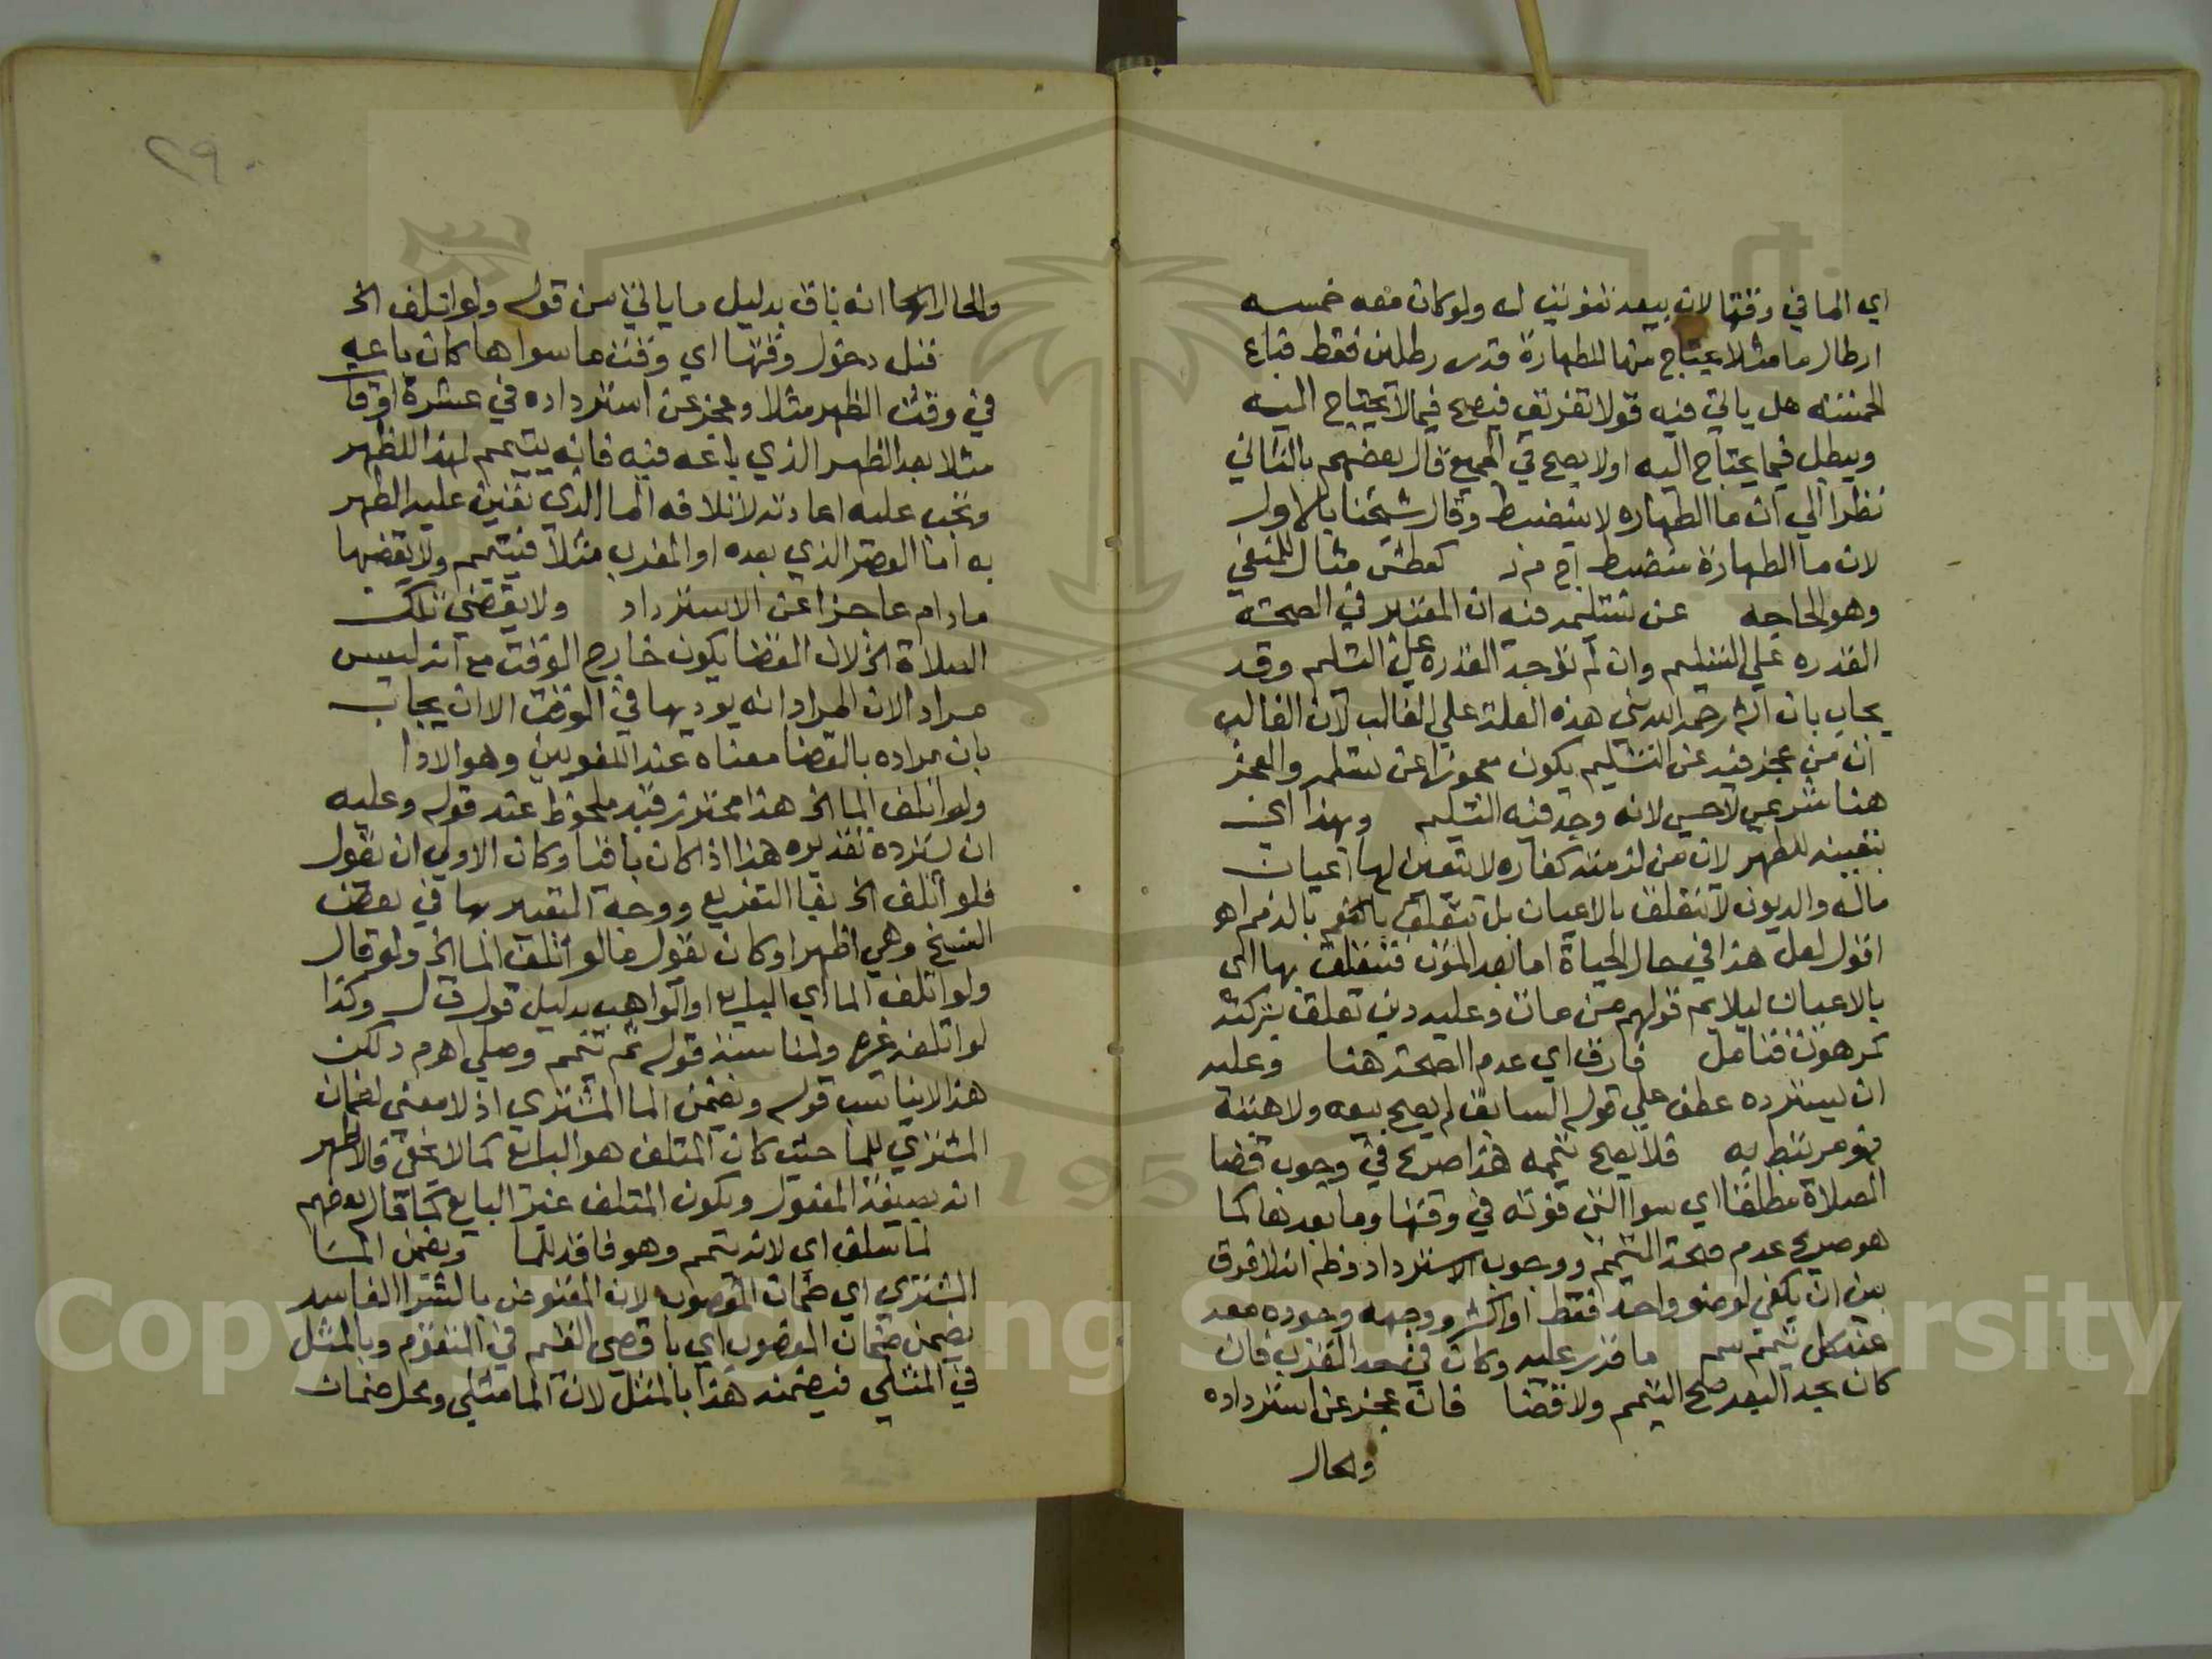 اي الما في وقتها لان بيعه تفويت له ولو كان معه خمسه
ارطال ما مثلا يحتاج منها للطهارة قدر رطلين فقط فباع
الخمسة هل ياتي فيه قولا تفريق فيصح فيما لا يحتاج اليه
ويبطل فيما يحتاج اليه اولا يصح في الجميع قال بعضهم بالثاني
نظرا الي ان ما الطهاره لا ينضبط وقال شيخنا بالاول
لان ما الطهارة منضبط اج م ر كعطش مثال للمنفي
وهو الحاجه عن تسلمه فيه ان المعتبر في الصحة
القدره علي التسليم وان لم توجد القدره علي التسلم وقد
يجاب بان الش رحمه الله بني هذه العلة علي الغالب لان الغالب
ان من عجز فيه عن التسليم يكون معجوزا عن تسلمه والعجز
هنا شرعي لا حسي لانه وجد فيه التسليم وبهذا الخ
بتعيينه للطهر لان من لزمته كفاره لا تتعين لها اعيان
ماله والديون لا تتعلق بالاعيان بل تتعلق بالذمم اهـ
اقول لعل هذا في حال الحياة اما بعد الموت فتتعلق بها اي
بالاعيان ليلايم قولهم من مات وعليه دين تعلق بتركته
كمرهون فتامل فارق اي عدم الصحة هنا وعليه
ان يسترده عطف علي قوله السابق لم يصح بيعه ولا هبته
فهو مرتبط به فلا يصح تيممه هذا صريح في وجوب قضا
الصلاة مطلقا اي سوا التي فوته في وقتها وما بعدها كما
هو صريح عدم صحة التيمم ووجوب الاسترداد وظ انه لا فرق
بين ان يكفي لوضو واحد فقط او اكثر ووجهه وجوده معه
عند كل تيمم سم ما قدر عليه وكان في حد القرب فان
كان بحد البعد صح التيمم ولا قضا فان عجز عن استرداده
والحال
والحال انه باق بدليل ما ياتي من قوله ولو اتلف الخ
قبل دخول وقتها اي وقت ما سواها كان باعه
في وقت الظهر مثلا وعجز عن استرداده في عشرة اوقات
مثلا بعد الظهر الذي باعه فيه فانه يتيمم لهذا للظهر
وتجب عليه اعادته لاتلافه الما الذي تعين عليه الطهر
به اما العصر الذي بعده او المغرب مثلا فيتيمم ولا يقضيها
مادام عاجزا عن الاسترداد ولا يقضي تلك
الصلاة الخ لان القضا يكون خارج الوقت مع انه ليس
مراد الان المراد انه يوديها في الوقت الا ان يجاب
بان مراده بالقضا معناه عند اللغويين وهو الادا
ولو اتلف الما الخ هذا محترز قيد ملحوظ عند قوله وعليه
ان يسترده تقديره هذا اذا كان باقيا وكان الاولي ان يقول
فلو اتلف الخ بفا التفريع ووجد التعبير بها في بعض
النسخ وهي اظهر او كان يقول فالو اتلف الما الخ ولو قال
ولو اتلف الما اي البايع او الواهب بدليل قول ق ل وكذا
لو اتلفه غيره ولمناسبة قوله ثم تيمم وصلي اهـ م د لكن
هذا لا يناسب قوله ويضمن الما المشتري اذ لا معني لضمان
المشتري للما حيث كان المتلف هو البايع كما لا يخفي فالاظهر
انه بصيغة المفعول ويكون المتلف غير البايع كما قال بعضهم
لما سلف اي لانه تيمم وهو فاقد للما ويضمن المـا
المشتري اي ضمان المغصوب لان المقبوض بالشرا الفاسد
يضمن ضمان المغصوب اي باقصي القيم في المتقوم وبالمثل
في المثلي فيضمنه هذا بالمثل لان الما مثلي ومحل ضمان
٢٩٠
Copyright © King Saud University
1957